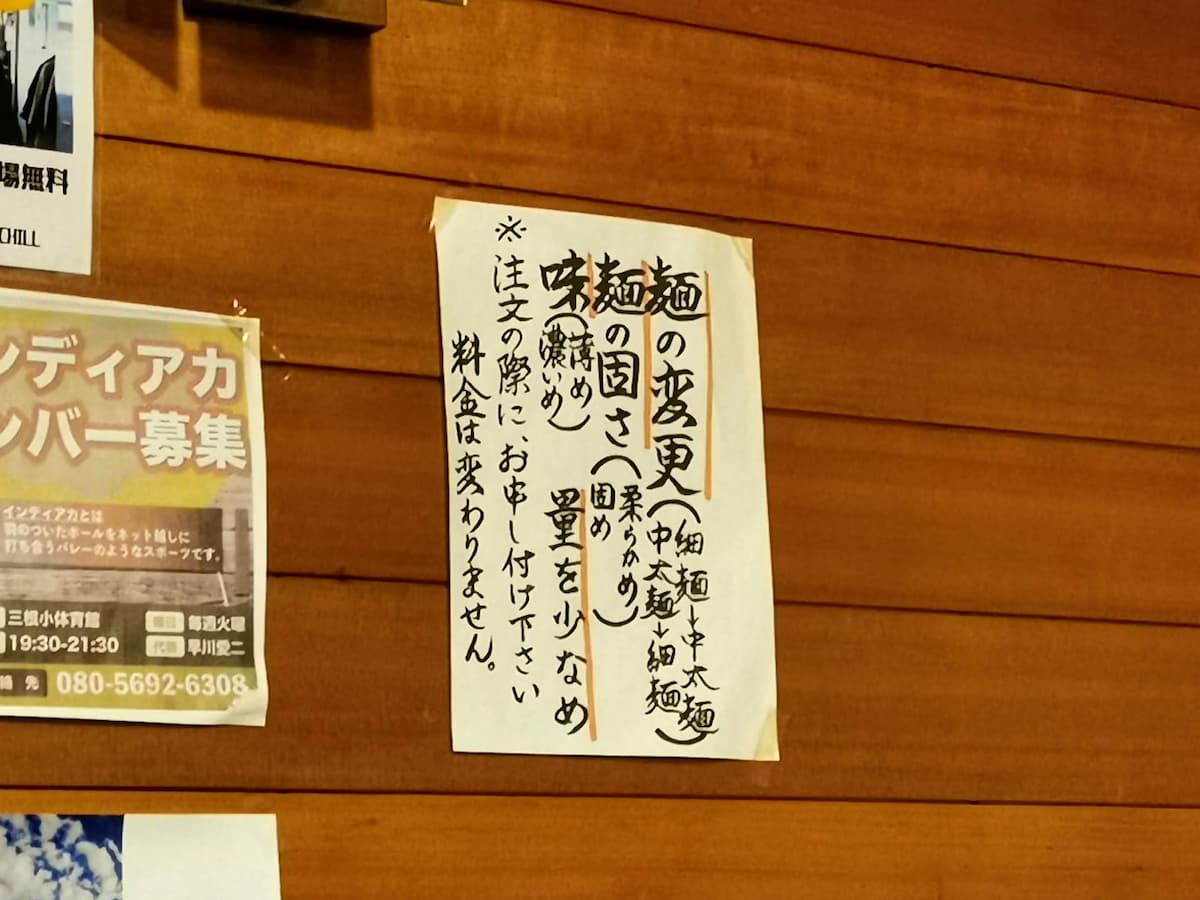 場無料
CHILL
ンディアカ
ンバー募集
インディアカとは
羽のついたボールをネット越しに
打ち合うバレーのようなスポーツです。
三根小体育館
曜日 毎週火曜
19:30-21:30
代表 早川愛二
絡先 080-5692-6308
麺の変更(細麺→中太麺
中太麺→細麺)
麺の固さ(柔らかめ
固め)
味(薄め
濃いめ) 量を少なめ
※注文の際に、お申し付け下さい
料金は変わりません。